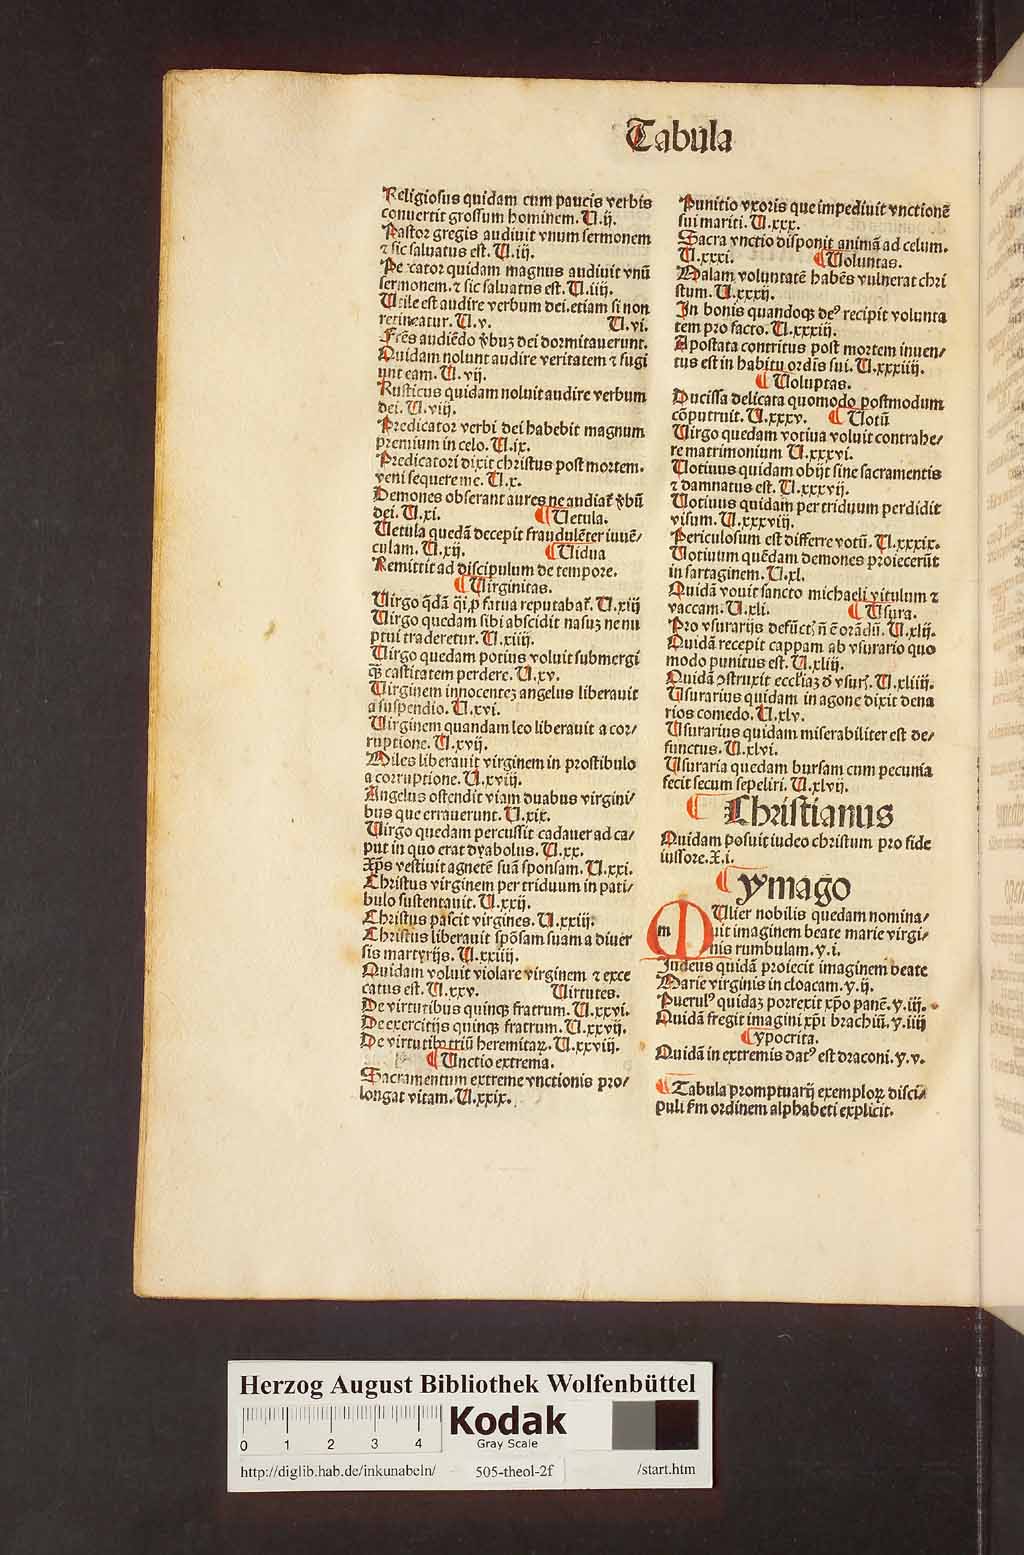 Tabula
Religiosus quidam cum paucis verbis
conuertit grossum hominem. U.ij.
Pastor gregis audiuit vnum sermonem
⁊ sic saluatus est. U.iij.
Peccator quidam magnus audiuit vnū
sermonem. ⁊ sic saluatus est. U.iiij.
Utile est audire verbum dei. etiam si non
retineatur. U.v. U.vi.
Frēs audiēdo v̄buꝫ dei dormitauerunt.
Quidam nolunt audire veritatem ⁊ fugi
unt eam. U.vij.
Rusticus quidam noluit audire verbum
dei. U.viij.
Predicator verbi dei habebit magnum
premium in celo. U.ix.
Predicatori dixit christus post mortem.
veni sequere me. U.x.
Demones obserant aures ne audiat̄ v̄bū
dei. U.xi. ¶ Uetula.
Uetula quedā decepit fraudulēter iuuē/
culam. U.xij. ¶ Uidua
Remittit ad discipulum de tempore.
¶ Uirginitas.
Uirgo q̄dā fatua reputabat̄. U.xiij
Uirgo quedam sibi abscidit nasuꝫ ne nu
ptui traderetur. U.xiiij.
Uirgo quedam potius voluit submergi
qꝫ castitatem perdere. U.xv.
Uirginem innocenteꝫ angelus liberauit
a suspendio. U.xvi.
Uirginem quandam leo liberauit a cor/
ruptione. U.xvij.
Miles liberauit virginem in prostibulo
a corruptione. U.xviij.
Angelus ostendit viam duabus virgini/
bus que errauerunt. U.xix.
Uirgo quedam percussit cadauer ad ca/
put in quo erat dyabolus. U.xx.
Xp̄s vestiuit agnetē suā sponsam. U.xxi.
Christus virginem per triduum in pati/
bulo sustentauit. U.xxij.
Christus pascit virgines. U.xxiij.
Christus liberauit spōsam suam a diuer
sis martyrijs. U.xxiiij.
Quidam voluit violare virginem ⁊ exce
catus est. U.xxv. Uirtutes.
De virtutibus quinqꝫ fratrum. U.xxvi.
De exercitijs quinqꝫ fratrum. U.xxvij.
De virtutibꝰ triū heremitaꝝ. U.xxviij.
¶ Unctio extrema.
Sacramentum extreme vnctionis pro/
longat vitam. U.xxix.
Punitio vxoris que impediuit vnctionē
sui mariti. U.xxx.
Sacra vnctio disponit animā ad celum.
U.xxxi. ¶ Uoluntas.
Malam voluntatē habēs vulnerat chri
stum. U.xxxij.
In bonis quandoqꝫ deꝰ recipit volunta
tem pro facto. U.xxxiij.
Apostata contritus post mortem inuen/
tus est in habitu ordis sui. U.xxxiiij.
¶ Uoluptas.
Ducissa delicata quomodo postmodum
cōputruit. U.xxxv. ¶ Uotū
Uirgo quedam votiua voluit contrahe/
re matrimonium U.xxxvi.
Uotiuus quidam obijt sine sacramentis
⁊ damnatus est. U.xxxvij.
Uotiuus quidam per triduum perdidit
visum. U.xxxviij.
Periculosum est differre votū. U.xxxix.
Uotiuum quēdam demones proiecerūt
in sartaginem. U.xl.
Quidā vouit sancto michaeli vitulum ⁊
vaccam. U.xli. ¶ Usura.
Pro vsurarijs defūctꝭ n̄ ē orādū. U.xlij.
Quidā recepit cappam ab vsurario quo
modo punitus est. U.xliij.
Quidā ↄstruxit eccl'iaꝫ d̄ vsurꝭ. U.xliiij.
Usurarius quidam in agone dixit dena
rios comedo. U.xlv.
Usurarius quidam miserabiliter est de/
functus. U.xlvi.
Usuraria quedam bursam cum pecunia
fecit secum sepeliri. U.xlvij.
¶ Christianus
Quidam posuit iudeo christum pro fide
iussore. X.i.
¶ ymago
m Ulier nobilis quedam nomina/
uit imaginem beate marie virgi/
nis rumbulam. y.i.
Judeus quidā proiecit imaginem beate
Marie virginis in cloacam. y.ij.
Puerulꝰ quidaꝫ porrexit xp̄o panē. y.iij.
Quidā fregit imagini xp̄i brachiū. y.iiij
¶ ypocrita.
Quidā in extremis datꝰ est draconi. y.v.
¶ Tabula promptuarij exemploꝝ disci/
puli fm ordinem alphabeti explicit.
Herzog August Bibliothek Wolfenbüttel
Kodak
Gray Scale
0 1 2 3 4
http://diglib.hab.de/inkunabeln/ 505-theol-2f /start.htm